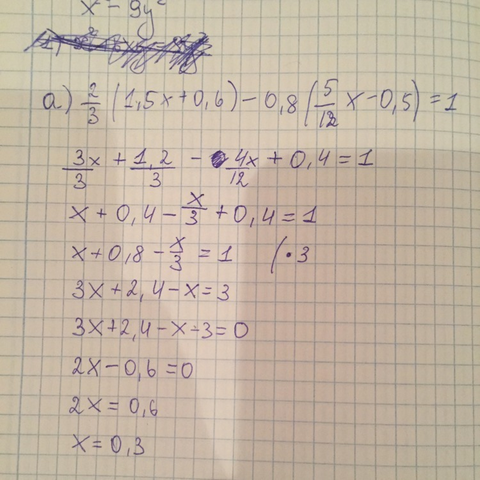 x² - 9y²
а) 2/3 (1,5x+0,6) - 0,8 (5/12 x - 0,5) = 1
3x/3 + 1,2/3 - 4x/12 + 0,4 = 1
x + 0,4 - x/3 + 0,4 = 1
x + 0,8 - x/3 = 1 (·3
3x + 2,4 - x = 3
3x + 2,4 - x - 3 = 0
2x - 0,6 = 0
2x = 0,6
x = 0,3